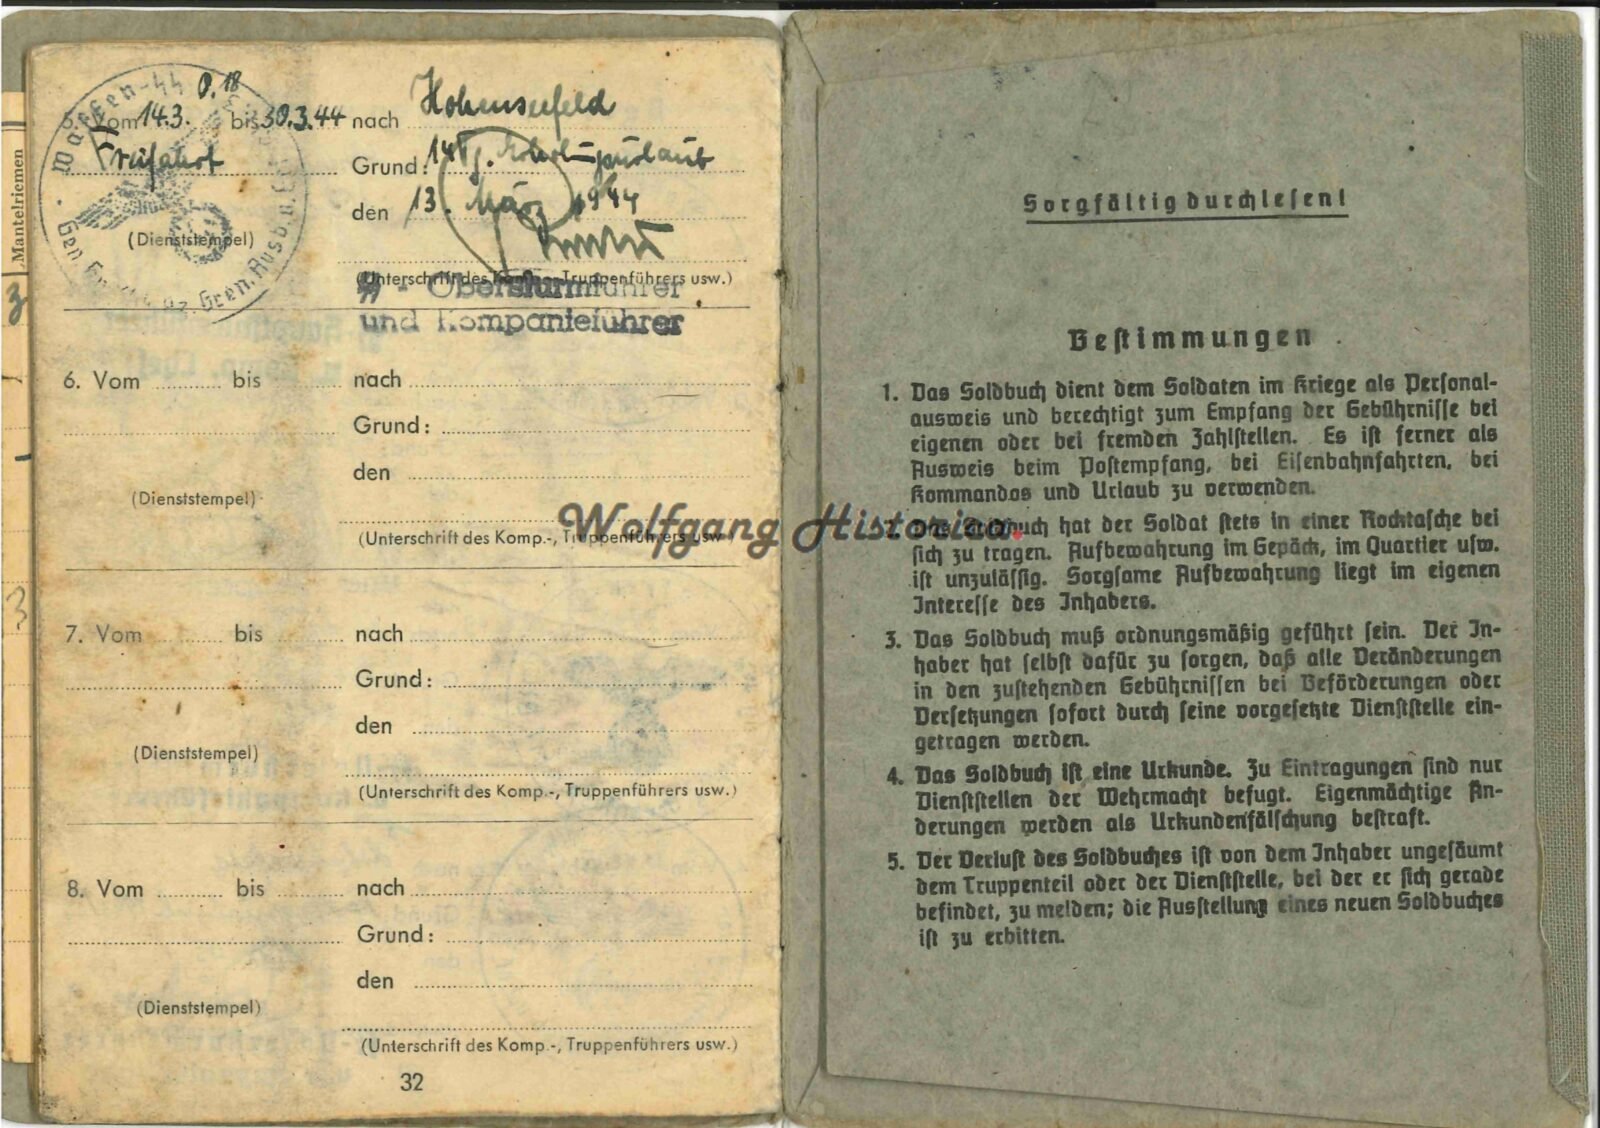 Mantelriemen
3
3
Waffen-SS
0.18
5. Vom 14.3. bis 30.3.44 nach Hohenseefeld
Freifahrt
Grund: 14 Tg. Erholungsurlaub
den 13. März 1944
(Dienststempel)
(Unterschrift des Komp.-, Truppenführers usw.)
SS - Obersturmführer
und Kompanieführer
6. Vom bis nach
Grund:
den
(Dienststempel)
(Unterschrift des Komp.-, Truppenführers usw.)
7. Vom bis nach
Grund:
den
(Dienststempel)
(Unterschrift des Komp.-, Truppenführers usw.)
8. Vom bis nach
Grund:
den
(Dienststempel)
(Unterschrift des Komp.-, Truppenführers usw.)
32
Wolfgang Historica.
Sorgfältig durchlesen!
Bestimmungen
1. Das Soldbuch dient dem Soldaten im Kriege als Personal-
ausweis und berechtigt zum Empfang der Gebührnisse bei
eigenen oder bei fremden Zahlstellen. Es ist ferner als
Ausweis beim Postempfang, bei Eisenbahnfahrten, bei
Kommandos und Urlaub zu verwenden.
2. Das Soldbuch hat der Soldat stets in einer Rocktasche bei
sich zu tragen. Aufbewahrung im Gepäck, im Quartier usw.
ist unzulässig. Sorgsame Aufbewahrung liegt im eigenen
Interesse des Inhabers.
3. Das Soldbuch muß ordnungsmäßig geführt sein. Der In-
haber hat selbst dafür zu sorgen, daß alle Veränderungen
in den zustehenden Gebührnissen bei Beförderungen oder
Versetzungen sofort durch seine vorgesetzte Dienststelle ein-
getragen werden.
4. Das Soldbuch ist eine Urkunde. Zu Eintragungen sind nur
Dienststellen der Wehrmacht befugt. Eigenmächtige Än-
derungen werden als Urkundenfälschung bestraft.
5. Der Verlust des Soldbuches ist von dem Inhaber ungesäumt
dem Truppenteil oder der Dienststelle, bei der er sich gerade
befindet, zu melden; die Ausstellung eines neuen Soldbuches
ist zu erbitten.